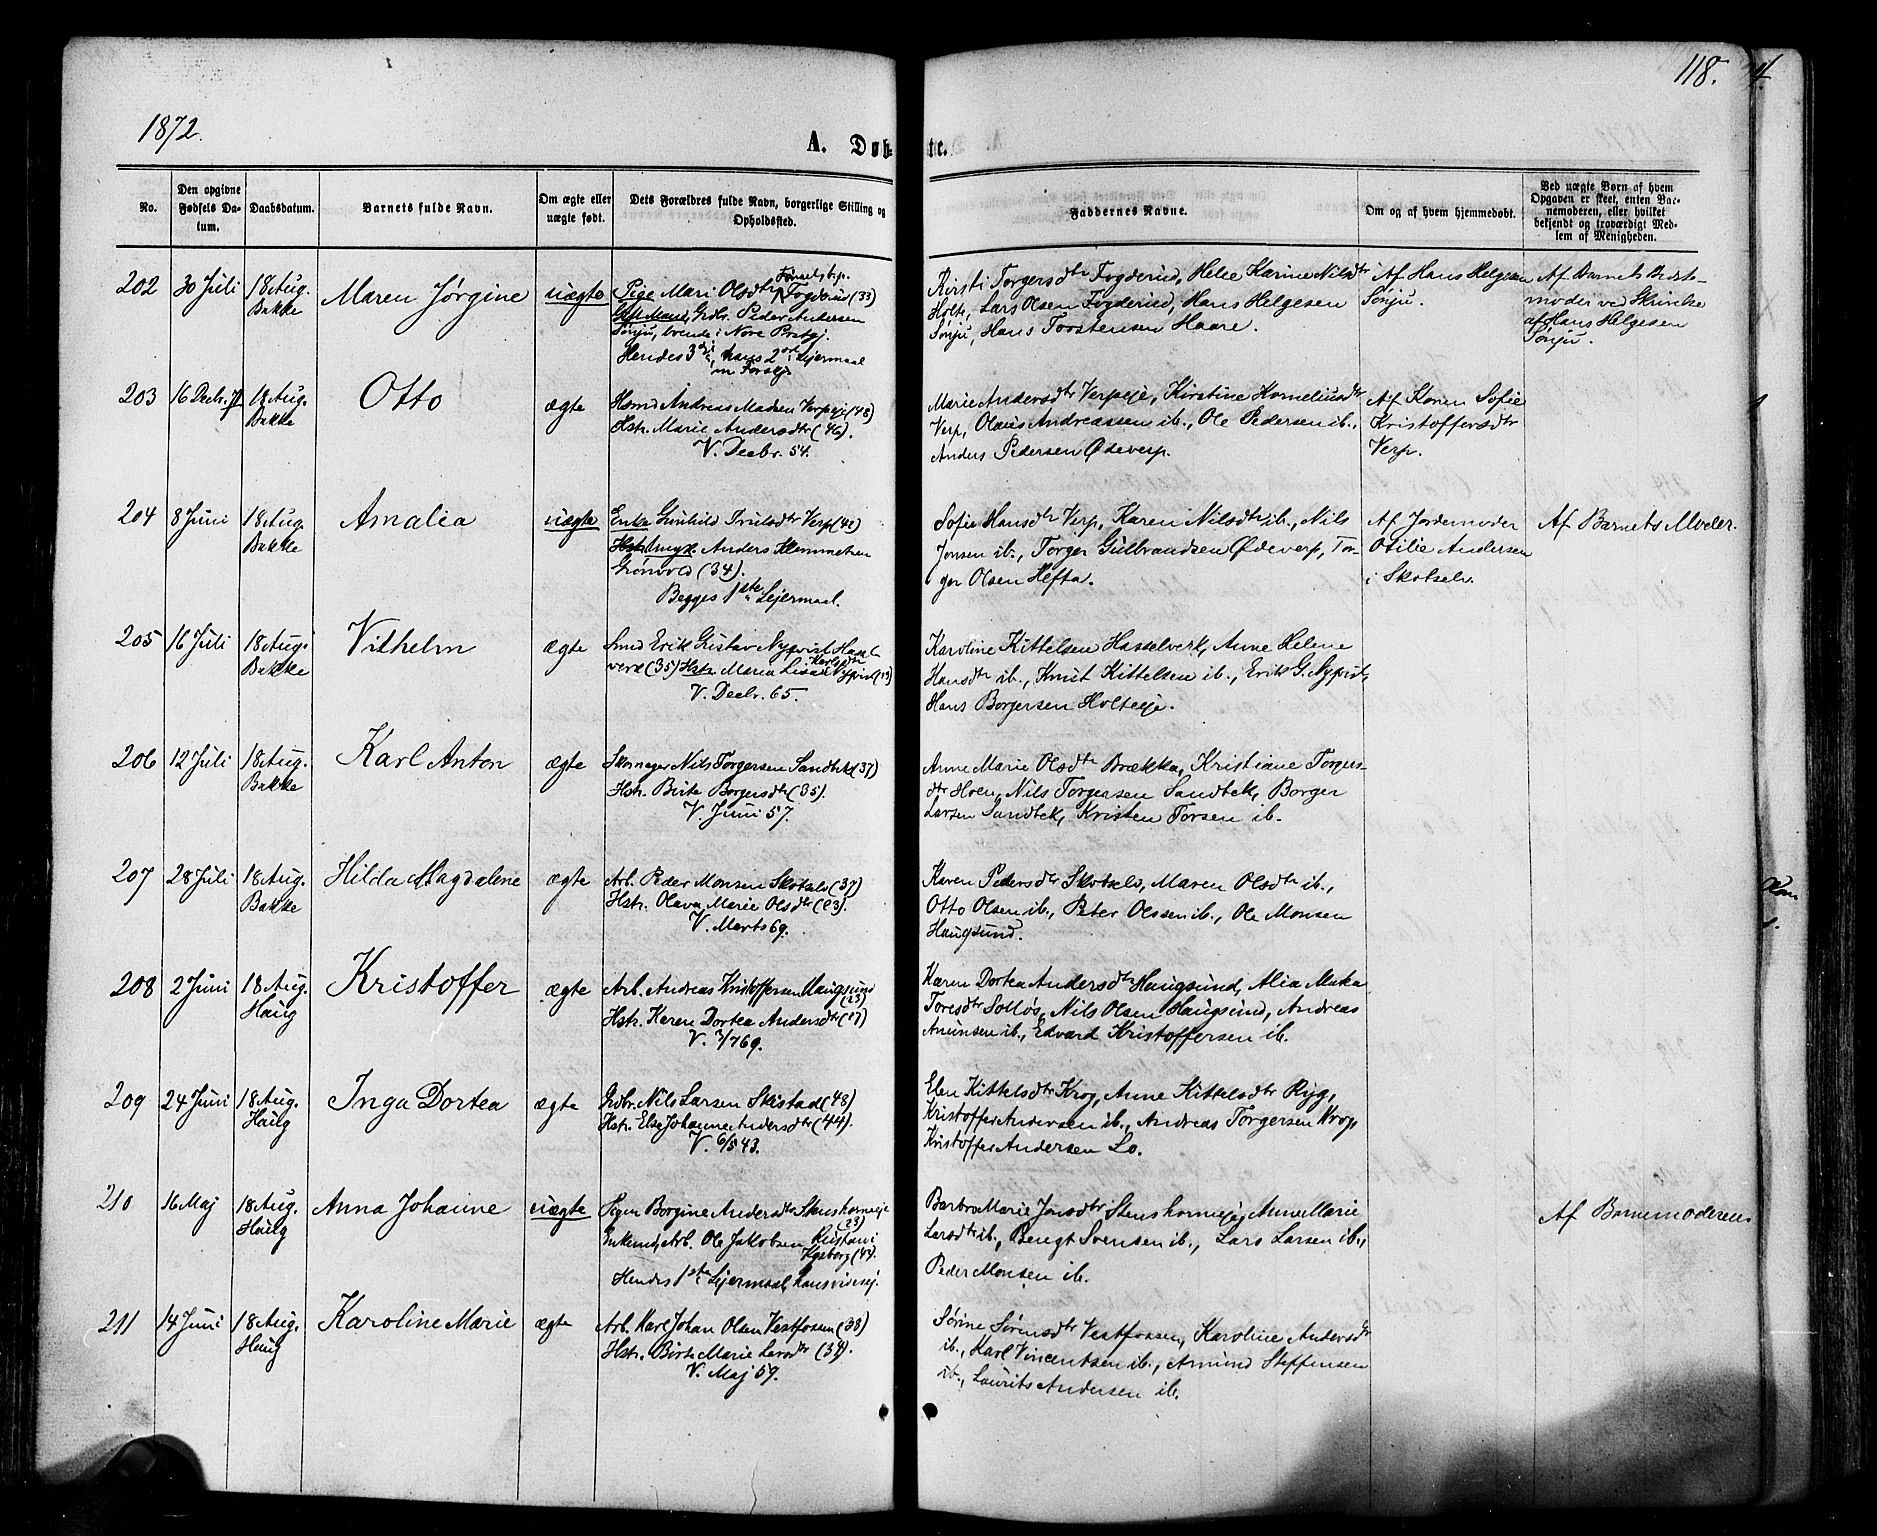 118.
1872.
A. Døb-
te.
No.
Den opgivne Fødsels Da-
tum.
Daabsdatum.
Barnets fulde Navn.
Om ægte eller
uægte født.
Dets Forældres fulde Navn, borgerlige Stilling og
Opholdssted.
Faddernes Navne.
Om og af hvem hjemmedøbt.
Ved uægte Børn af hvem
Opgaven er skeet, enten Bar-
nemoderen, eller hvilket
bekjendt og troværdigt Med-
lem af Menigheden.
202 30 Juli 18 Aug. Bakke
Maren Jørgine
uægte
Pige Mari Olsdtr Fogderud (33)
Grdbr. Peder Andersen
Sønju, boende i Nore Prstgj.
Hendes 3die, hans 2det Lejermaal
Kirsti Torgersdtr Fogderud, Helie Karine Nilsdtr
Holte, Lars Olsen Fogderud, Hans Helgesen
Sønju, Hans Torstensen Haare.
Af Hans Helgesen
Sønju.
Af Barnets Bedst-
moder ved Skrivelse
af Hans Helgesen
Sønju.
203 16 Decbr. 71 18 Aug. Bakke
Otto
ægte
Hsmd Andreas Madsen Verpeje (48)
Hstr. Marie Andersdtr (46).
V. Decbr. 54.
Marie Andersdtr Verpeje, Kirstine Korneliusdtr
Verp, Olaus Andreassen ib., Ole Pedersen ib.,
Anders Pedersen Ødeverp.
Af Karen Sofie
Kristoffersdtr
Verp.
204 8 Juni 18 Aug. Bakke
Amalia
uægte
Enke Gunhild Trulsdtr Verp (42)
Ungk. Anders Klemmetsen
Grønvold (34).
Begges 1ste Lejermaal.
Sofie Hansdtr Verp, Karen Nilsdtr ib., Nils
Jonsen ib., Torger Gulbrandsen Ødeverp, Tor-
ger Olsen Hefta.
Af Jordemoder
Otilie Andersen
i Skotselv.
Af Barnets Moder.
205 16 Juli 18 Aug. Bakke
Vilhelm
ægte
Smed Erik Gustav Nyqvist Hassel-
verk (35) Hstr. Maria Lisa Karlsdtr Nyqvist
V. Decbr. 65.
Karoline Kittelsen Hasselverk, Anne Helene
Hansdtr ib., Knut Kittelsen ib., Erik G. Nyqvist,
Hans Borgersen Holteeje.
206 12 Juli 18 Aug. Bakke
Karl Anton
ægte
Skomager Nils Torgersen Sandbek (37)
Hstr. Birte Borgersdtr (35).
V. Juni 57.
Anne Marie Olsdtr Brækka, Kristiane Torgers-
dtr Hoen, Nils Torgersen Sandbek, Borger
Larsen Sandbek, Kristen Torsen ib.
207 28 Juli 18 Aug. Bakke
Hilda Magdalene
ægte
Arb. Peder Monsen Skotselv (37)
Hstr. Olava Marie Olsdtr (23).
V. Marts 69.
Karen Pedersdtr Skotselv, Maren Olsdtr ib.,
Otto Olsen ib., Peter Olssen ib., Ole Monsen
Haugsund.
208 2 Juni 18 Aug. Haug
Kristoffer
ægte
Arb. Andreas Kristoffersen Haugsund
(23)
Hstr. Karen Dortea Andersdtr (27)
V. 2/7 69.
Karen Dortea Andersdtr Haugsund,
Toresdtr Solløs, Nils Olsen Haugsund, Andreas
Amunsen ib., Edvard Kristoffersen ib.
209 24 Juni 18 Aug. Haug
Inga Dortea
ægte
Grdbr. Nils Larsen Skistad (48)
Hstr. Else Johanne Andersdtr (44).
V. 6/5 43.
Elen Kittelsdtr Krog, Anne Kittelsdtr Ryg,
Kristoffer Andersen ib., Andreas Torgersen Krog,
Kristoffer Andersen Lo.
210 16 Maj 18 Aug. Haug
Anna Johanne
uægte
Pigen Borgine Andersdtr Stenshorneje
(23)
Enkemd, Arb. Ole Jakobsen
Kgsberg
Hendes 1ste Lejermaal, hans vides ej.
Barbro Marie Jonsdtr Stenshorneje, Anne Marie
Larsdtr ib., Bengt Svensen ib., Lars Larsen ib.,
Peder Monsen ib.
Af Barnemoderen
211 14 Juni 18 Aug. Haug
Karoline Marie
ægte
Arb. Karl Johan Olsen Vestfossen (38)
Hstr. Birte Marie Larsdtr (39).
V. Maj 59.
Sørine Sørensdtr Vestfossen, Karoline Andersdtr
ib., Karl Vincentsen ib., Amund Steffensen
ib., Laurits Andersen ib.